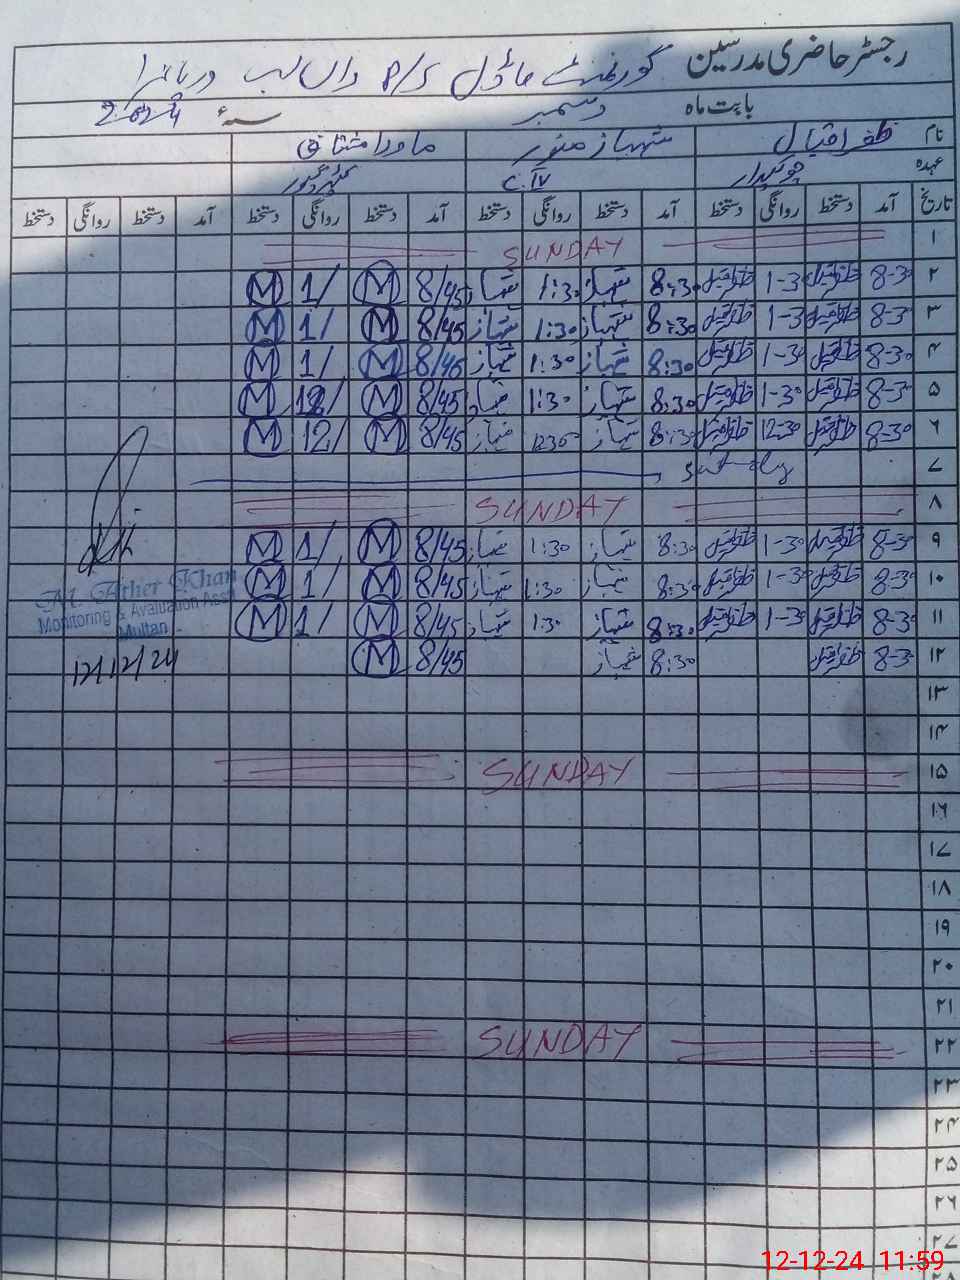 رجسٹر حاضری مدرسین گورنمنٹ ماڈل P/S واں لب دریا
بابت ماہ دسمبر سنہ 2024
نام ظفر اقبال شہباز منور ماورا مشتاق
عہدہ چوکیدار C.IV کئیر گیور
تاریخ آمد دستخط روانگی دستخط آمد دستخط روانگی دستخط آمد دستخط روانگی دستخط آمد دستخط روانگی دستخط
۱ SUNDAY
۲ 8-30 ظفر اقبال 1-30 ظفر اقبال 8:30 شہباز 1:30 شہباز 8/45 M 1/ M
۳ 8-30 ظفر اقبال 1-30 ظفر اقبال 8:30 شہباز 1:30 شہباز 8/45 M 1/ M
۴ 8-30 ظفر اقبال 1-30 ظفر اقبال 8:30 شہباز 1:30 شہباز 8/45 M 1/ M
۵ 8-30 ظفر اقبال 1-30 ظفر اقبال 8:30 شہباز 1:30 شہباز 8/45 M M
۶ 8-30 ظفر اقبال 12-30 ظفر اقبال 8:30 شہباز 1230 شہباز 8/45 M 12/ M
۷ Saturday
۸ SUNDAY
۹ 8-30 ظفر اقبال 1-30 ظفر اقبال 8:30 شہباز 1:30 شہباز 8/45 M 1/ M
۱۰ 8-30 ظفر اقبال 1-30 ظفر اقبال 8:30 شہباز 1:30 شہباز 8/45 M 1/ M
۱۱ 8-30 ظفر اقبال 1-30 ظفر اقبال 8:30 شہباز 1:30 شہباز 8/45 M 1/ M
۱۲ 8-30 ظفر اقبال 8:30 شہباز 8/45 M
M. Ather Khan
Monitoring & Avaluation Asstt
Multan
12/12/24
۱۳
۱۴
۱۵ SUNDAY
۱۶
۱۷
۱۸
۱۹
۲۰
۲۱
۲۲ SUNDAY
۲۳
۲۴
۲۵
۲۶
۲۷
۲۸
12-12-24 11:59